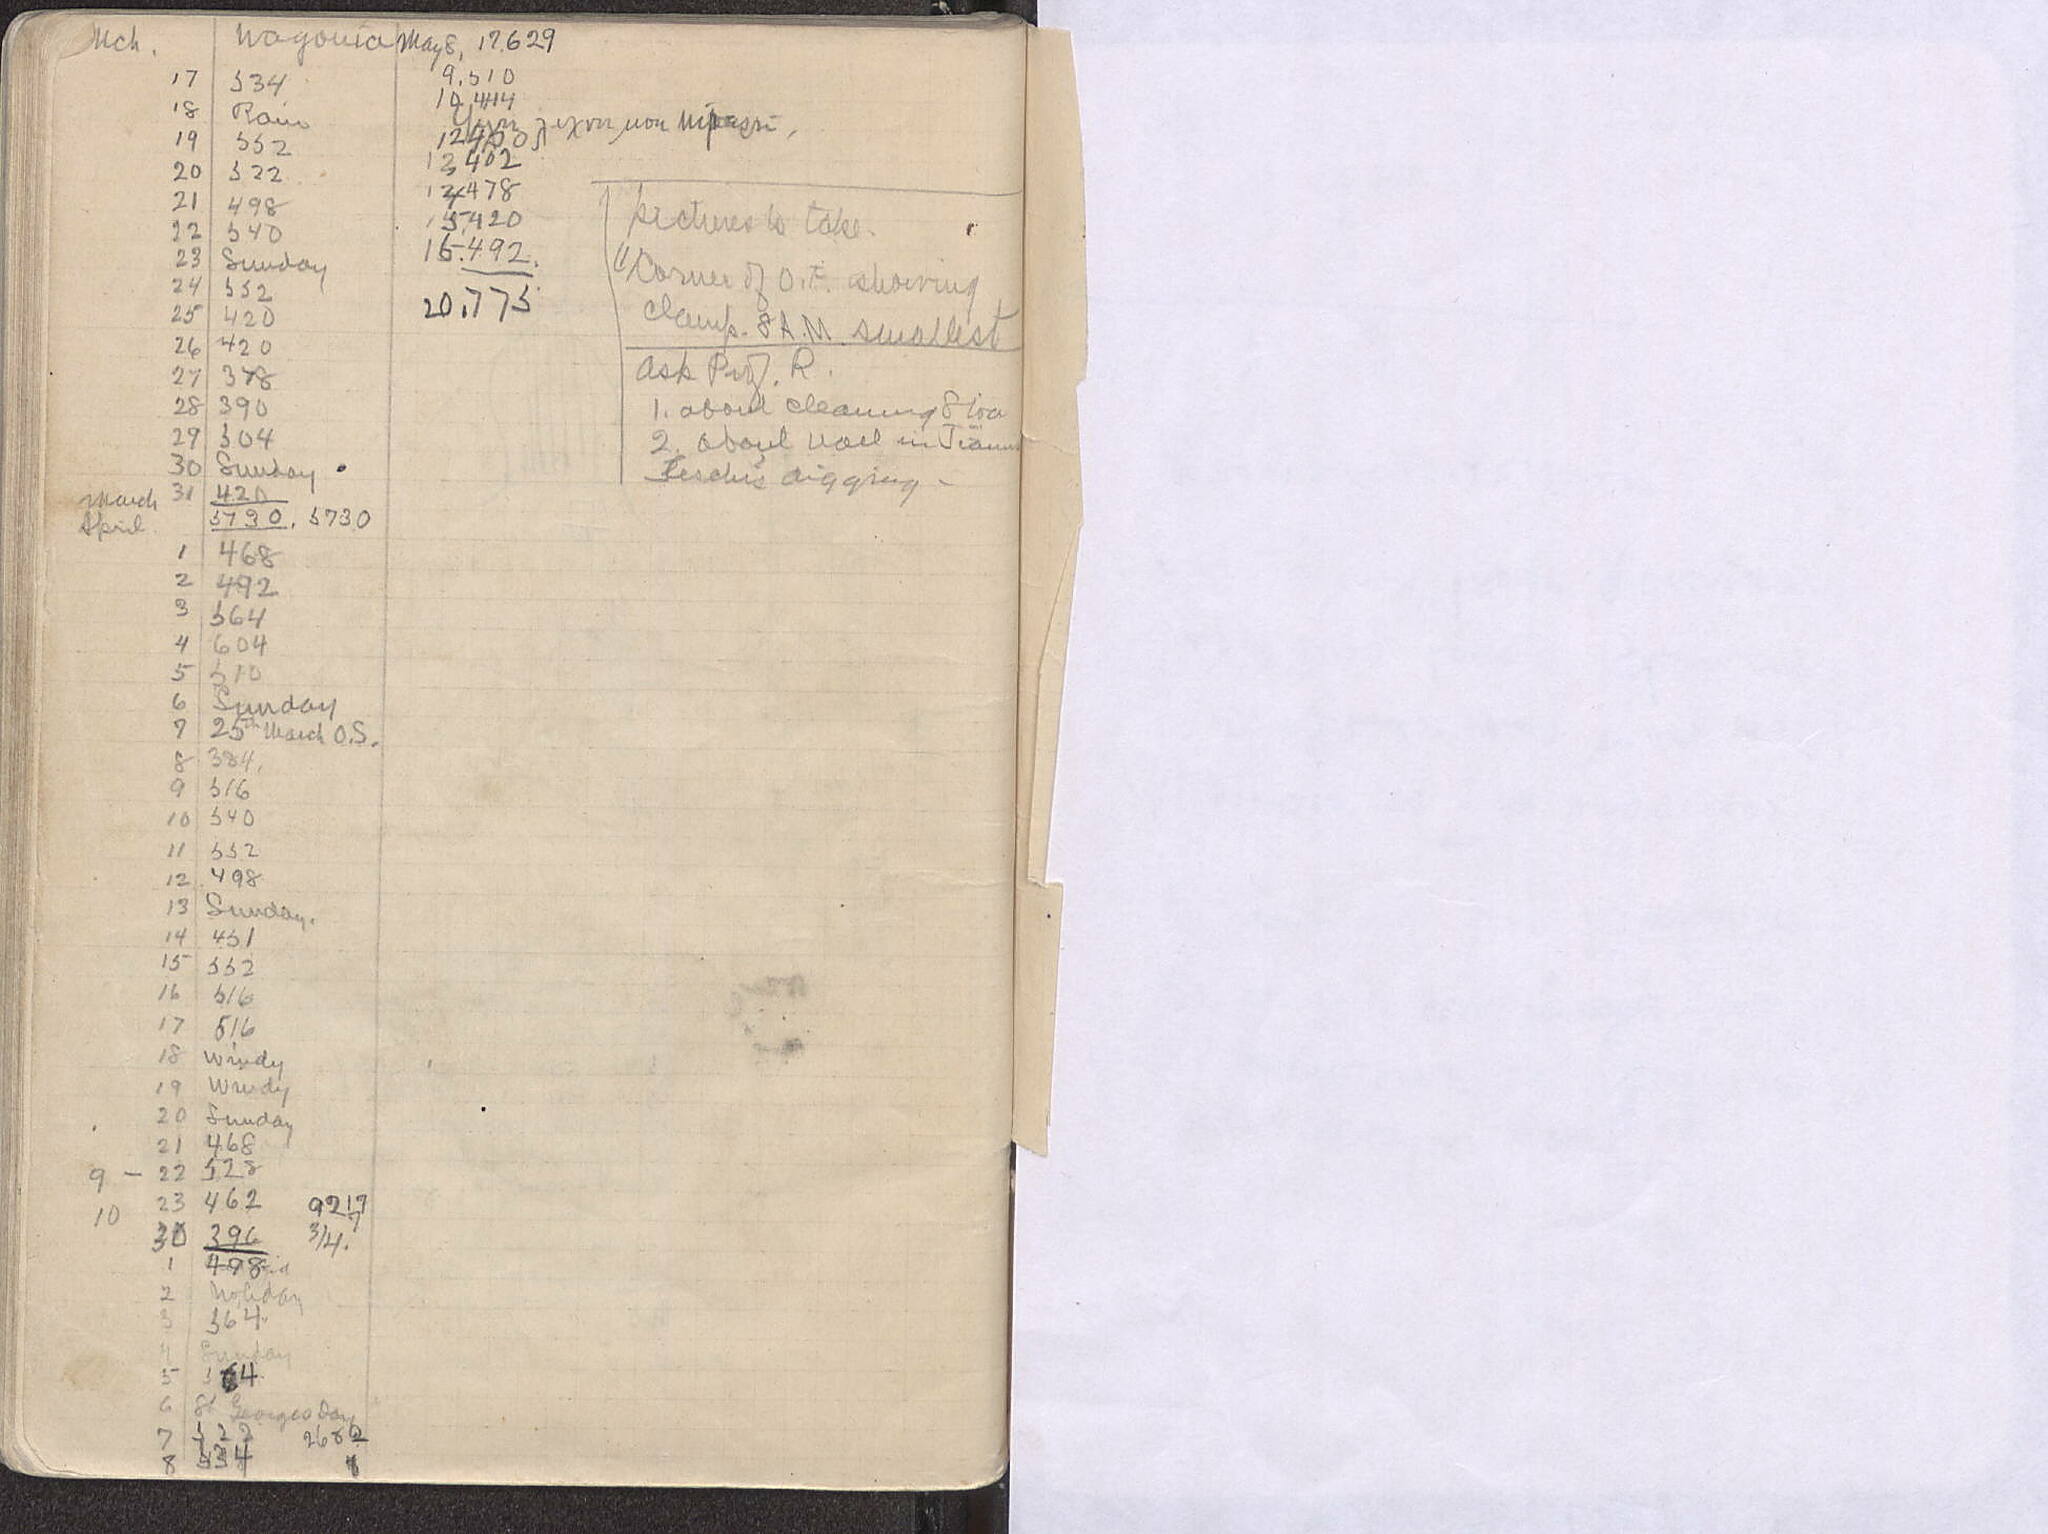 Mch. Wagonia May 8, 17.629
17 534 9.510
18 Rain 10.444
19 552 12
20 522 13 402
21 498 14 478
22 540 15.420
23 Sunday 16.492.
24 552 20.775
25 420
26 420
27 378
28 390
29 504
30 Sunday
March 31 420
April 5730. 5730
1 468
2 492
3 564
4 604
5 510
6 Sunday
7 25th March O.S.
8 384.
9 516
10 540
11 552
12 498
13 Sunday.
14 451
15 552
16 516
17 516
18 Windy
19 Windy
20 Sunday
21 468
9 - 22 528
10 23 462 9217
30 396 3/4.
1 498
2 Holiday
3 564
4 Sunday
5 564
6 St Georges Day
7 522
8 534
pictures to take.
1) Corner of O.T. showing
clamp. 8 A.M. smallest
ask Prof. R.
1. about cleaning Stoa
2. about wall in
digging -